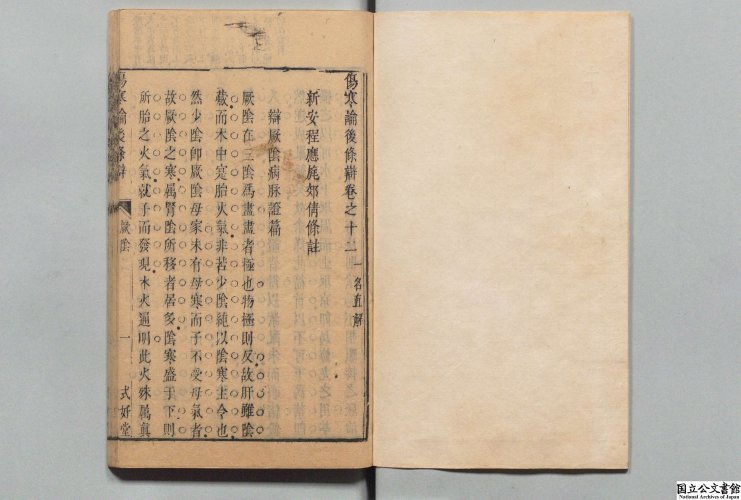 傷寒論後條辯卷之十二 一名直解
新安程應旄郊倩條註
辯厥陰病脉證篇
厥陰在三陰爲盡盡者極也物極則反故肝雖陰
藏而木中寔胎火氣非若少陰純以陰寒主令也
然少陰卽厥陰母家未有母寒而子不受母氣者
故厥陰之寒屬腎陰所移者居多陰寒盛于下則
所胎之火氣就于而發現木火通明此火殊屬真
傷寒論後條辯 厥陰 一 式好堂
国立公文書館
National Archives of Japan